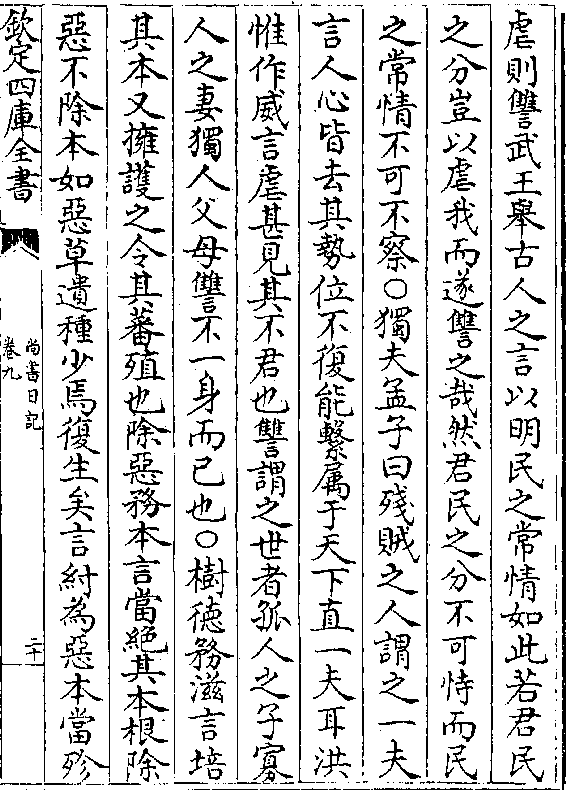 虐則讐武王舉古人之言以明民之常情如此若君民
之分豈以虐我而遂讐之哉然君民之分不可恃而民
之常情不可不察○獨夫孟子曰殘賊之人謂之一夫
言人心皆去其勢位不復能繫属于天下直一夫耳洪
惟作威言虐甚見其不君也讐謂之世者孤人之子寡
人之妻獨人父母讐不一身而已也○樹德務滋言培
其本又擁護之令其蕃殖也除惡務本言當絕其本根除
惡不除本如惡草遺種少焉復生矣言紂為惡本當殄
欽定四庫全書
尚書日記
卷九
二十